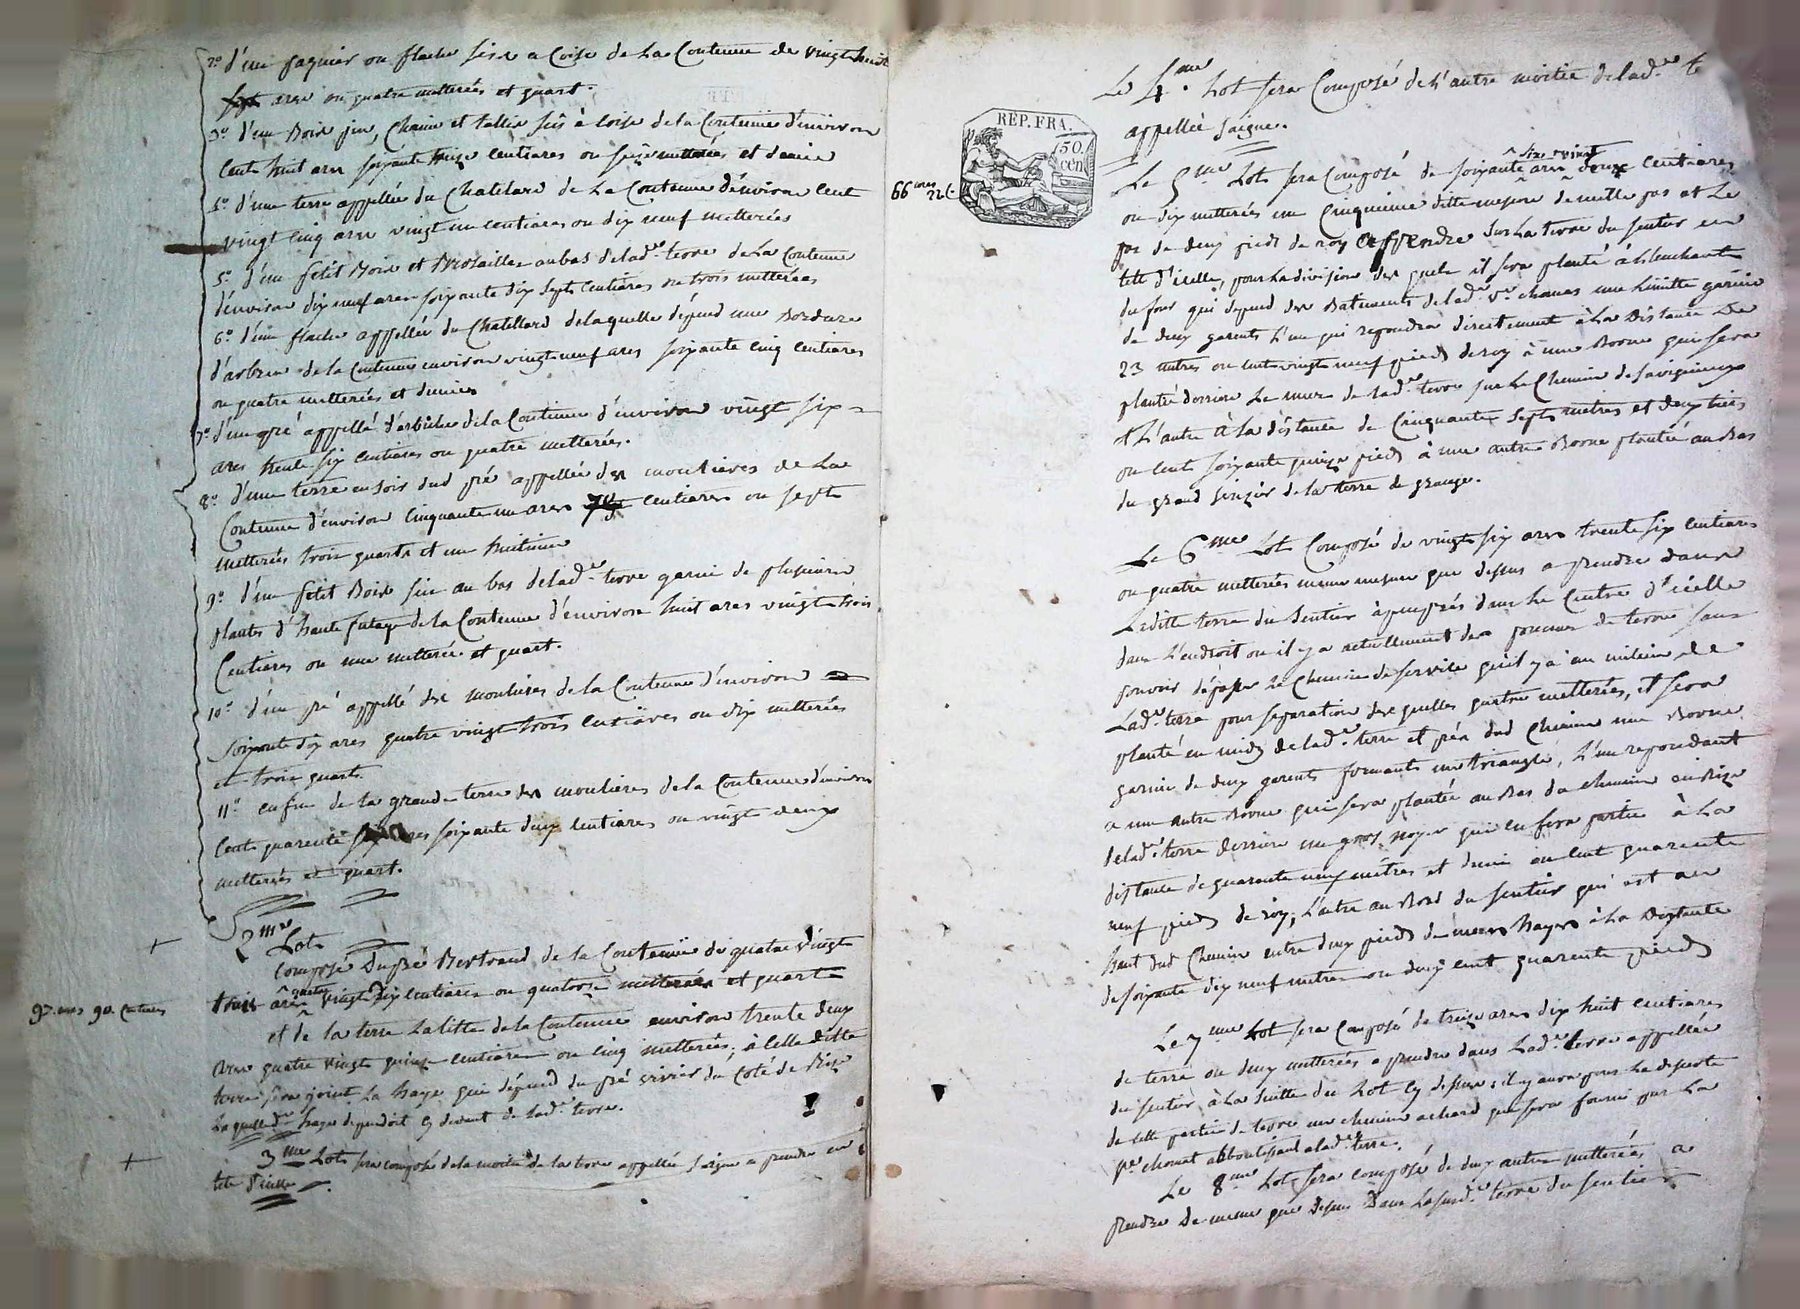 2° d'un paquier ou flache sise a Coise de la Contenue de vingt huit
ares ou quatre metterées et quart.
3° d'un Bois pin, Chaine et taillis sis à Coise de la Contenue d'environ
Cent huit ares soixante treize centiares ou seize metterées et demie
4° d'une terre appellée du Chatelard de la Contenue d'environ Cent
vingt cinq ares vingt un centiares ou dix neuf metterées
5° d'un petit Bois et Brossailles au bas de lad.e terre de la Contenue
d'environ dix neuf ares soixante dix sept centiares ou trois metterées
6° d'une flache appellée du Chatellard de laquelle dépend une Bordure
d'arbres de la Contenue environ vingt neuf ares soixante cinq centiares
ou quatre metterées et demies
7° d'un pré appellé de la Contenue d'environ vingt six
ares trente six centiares ou quatre metterées.
8° d'une terre en soir dud pré appellée des moulieres de la
Contenue d'environ cinquante un ares centiares ou sept
metterées trois quarts et un huitieme
9° d'un petit Bois sis au bas de lad.e terre garni de plusieurs
plantes d'haute futaye de la Contenue d'environ huit ares vingt trois
Centiares ou une metterée et quart.
10° d'un pré appellé des moulieres de la Contenue d'environ
soixante dix ares quatre vingt trois centiares ou dix metterées
et trois quart.
11° enfin de la grande terre des moulieres de la Contenue d'environ
Cent quarente ares soixante deux centiares ou vingt deux
metterées et quart.
2me Lot
composé du pré Bertrand de la Contenue de quatre vingt
97 ares 90 Centiares
trois ares quatre vingt dix centiares ou quatorze metterées et quart
et de la terre Lalitte de la Contenue environ trente deux
ares quatre vingt quinze centiares ou cinq metterées, à celle ditte
terre sera joint la haye qui dépend du pré vivier du Coté de Bize
laquelle d.e haye dependoit cy devant de lad.e terre.
3me Lot sera composé de la moitié de la terre appellée Saigne a prendre en
tete d'icelle.
Le 4.me Lot sera Composé de l'autre moitié de lad.e te
appellée Saigne.
REP. FRA.
50 cen
66 ares 22 C
Le 5me Lot sera Composé de soixante six ares vingt deux centiares
ou dix metterées un Cinquieme ditte mesure de mille pas et le
pas de deux pieds de roy a prendre sur la terre du sentier en
tete d'icelle, pour la division des quels il sera planté à
du four qui depend des Batiments de lad.e v.e chomat une limitte garnie
de deux garents l'un qui repondra directement à la distance de
23 metres ou cent vingt neuf pieds de roy à une Borne qui sera
plantée derriere le mur de lad.e terre sur le Chemin de
et l'autre à la distance de Cinquante sept metres et deux tiers
ou cent soixante quinze pieds à une autre Borne plantée au Bas
du grand de la terre de grange.
Le 6me Lot Composé de vingt six ares trente six centiares
ou quatre metterées meme mesure que dessus a prendre dans
Ladite terre du Sentier à peu près dans le Centre d'icelle
dans l'endroit ou il y a actuellement des pommes de terre sans
pouvoir dépasser le Chemin de service qu'il y a au milieu de
Lad.e terre pour separation des quelles quatre metterées, il sera
planté en midy de lad.e terre et près dud Chemin une Borne
garnie de deux garents formants un triangle, l'un repondant
a une autre Borne qui sera plantée au Bas du chemin en Bize
de lad.e terre derriere un gros noyer qui en fera partie à la
distance de quarente neuf mètres et demi ou cent quarente
neuf pieds de roy, l'autre au Bord du sentier qui est au
haut dud Chemin entre deux pieds de meurs hayes à la Distante
de soixante dix neuf metres ou deux cent quarente pieds
Le 7me Lot sera Composé de treize ares dix huit centiares
de terre ou deux metterées a prendre dans Lad.e terre appellée
du sentier à la suitte du Lot cy dessus; il y aura pour la desserte
de cette partie de terre un chemin a chard qui sera fourni par la
v.e chomat abboutissant a lad.e terre.
Le 8me Lot sera composé de deux autres metterées a
prendre de meme que dessus Dans la susd.e terre du sentier